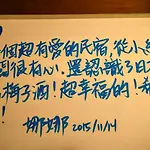 個超有愛的民宿，從小
很有心，還認識了日
梅了酒！超幸福的！
娜娜 2015/11/14